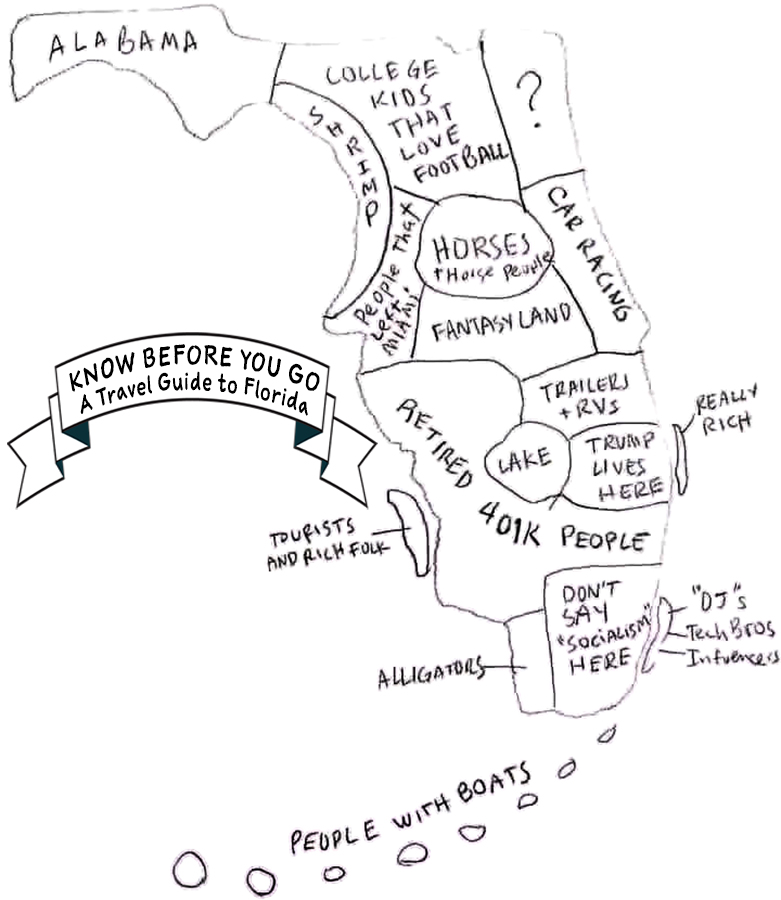 ALABAMA
COLLEGE
KIDS
THAT
LOVE
FOOTBALL
?
SHRIMP
People That
Left
MIAMI
HORSES
+ Horse People
CAR RACING
FANTASYLAND
KNOW BEFORE YOU GO
A Travel Guide to Florida
TRAILERS
+ RVs
REALLY
RICH
RETIRED
401K PEOPLE
LAKE
TRUMP
LIVES
HERE
TOURISTS
AND RICH FOLK
DON'T
SAY
"SOCIALISM"
HERE
"DJ"s
Tech Bros
Influencers
ALLIGATORS
PEOPLE WITH BOATS